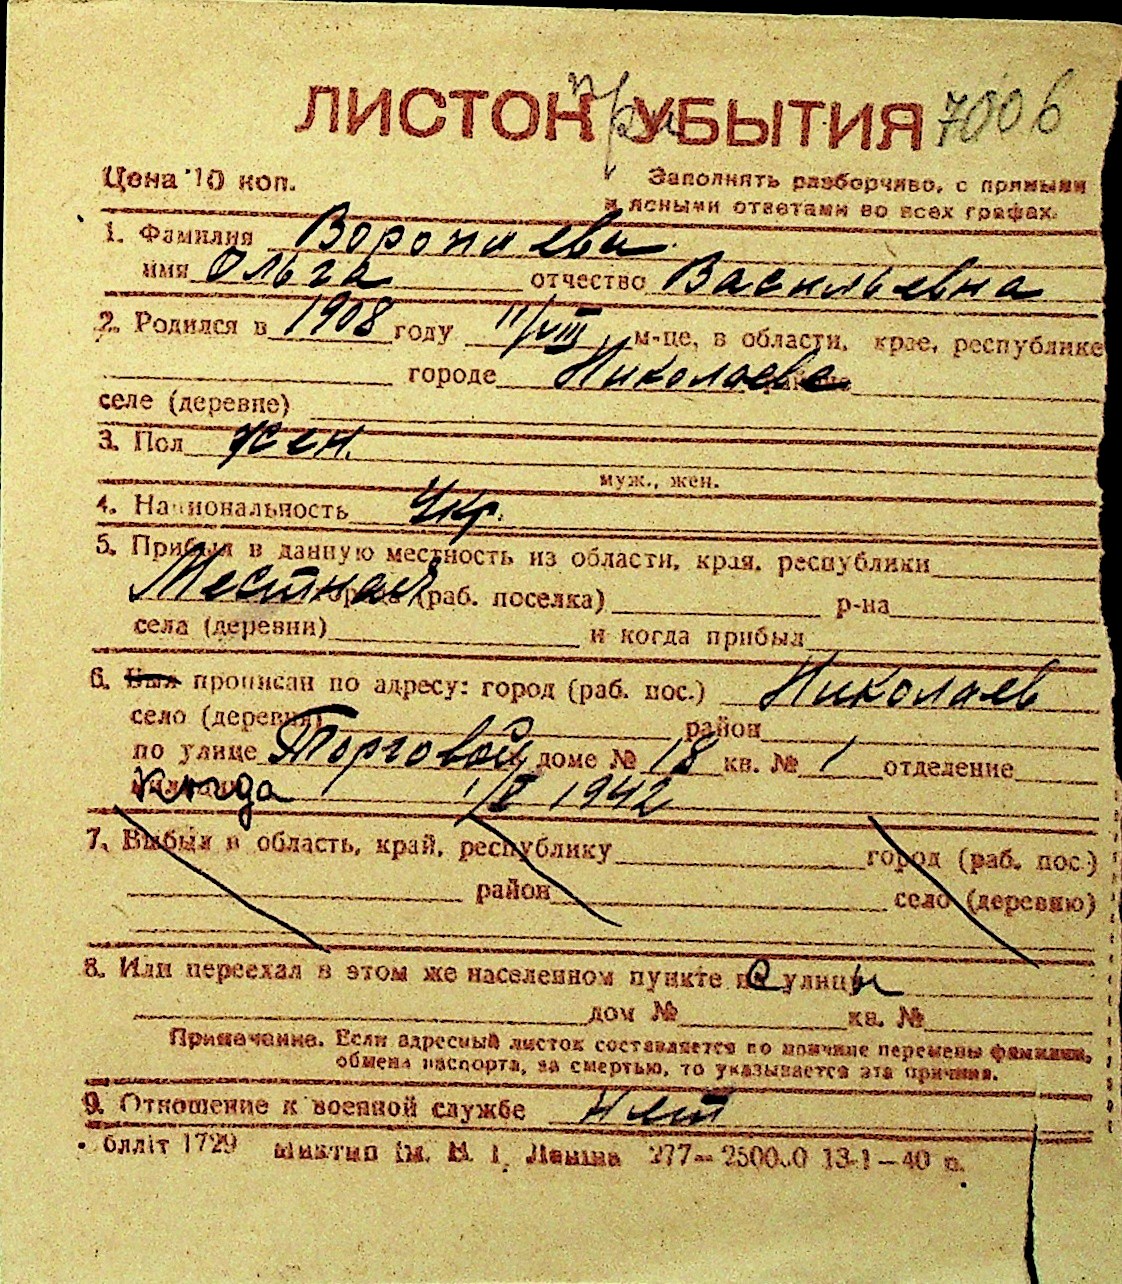 ЛИСТОК при УБЫТИЯ 7006
Цена 10 коп. Заполнять разборчиво, с прямыми
и ясными ответами во всех графах.
1. Фамилия
имя Ольга отчество Васильевна
2. Родился в 1908 году 11/VIII м-це, в области, крае, республике
городе Николаеве
селе (деревне)
3. Пол жен.
муж., жен.
4. Национальность Укр.
5. Прибыл в данную местность из области, края, республики
Местная (раб. поселка) р-на
села (деревни) и когда прибыл
6. Был прописан по адресу: город (раб. пос.) Николаев
село (деревня) район
по улице Торговой доме № 18 кв. № 1 отделение
когда 1/V 1942
7. Выбыл в область, край, республику город (раб. пос.)
район село (деревню)
8. Или переехал в этом же населенном пункте с улицы
дом № кв. №
Примечание. Если адресный листок составляется по причине перемены фамилии,
обмена паспорта, за смертью, то указывается эта причина.
9. Отношение к военной службе нет
блліт 1729 ім. В. І. Леніна 277— 13-1—40 р.